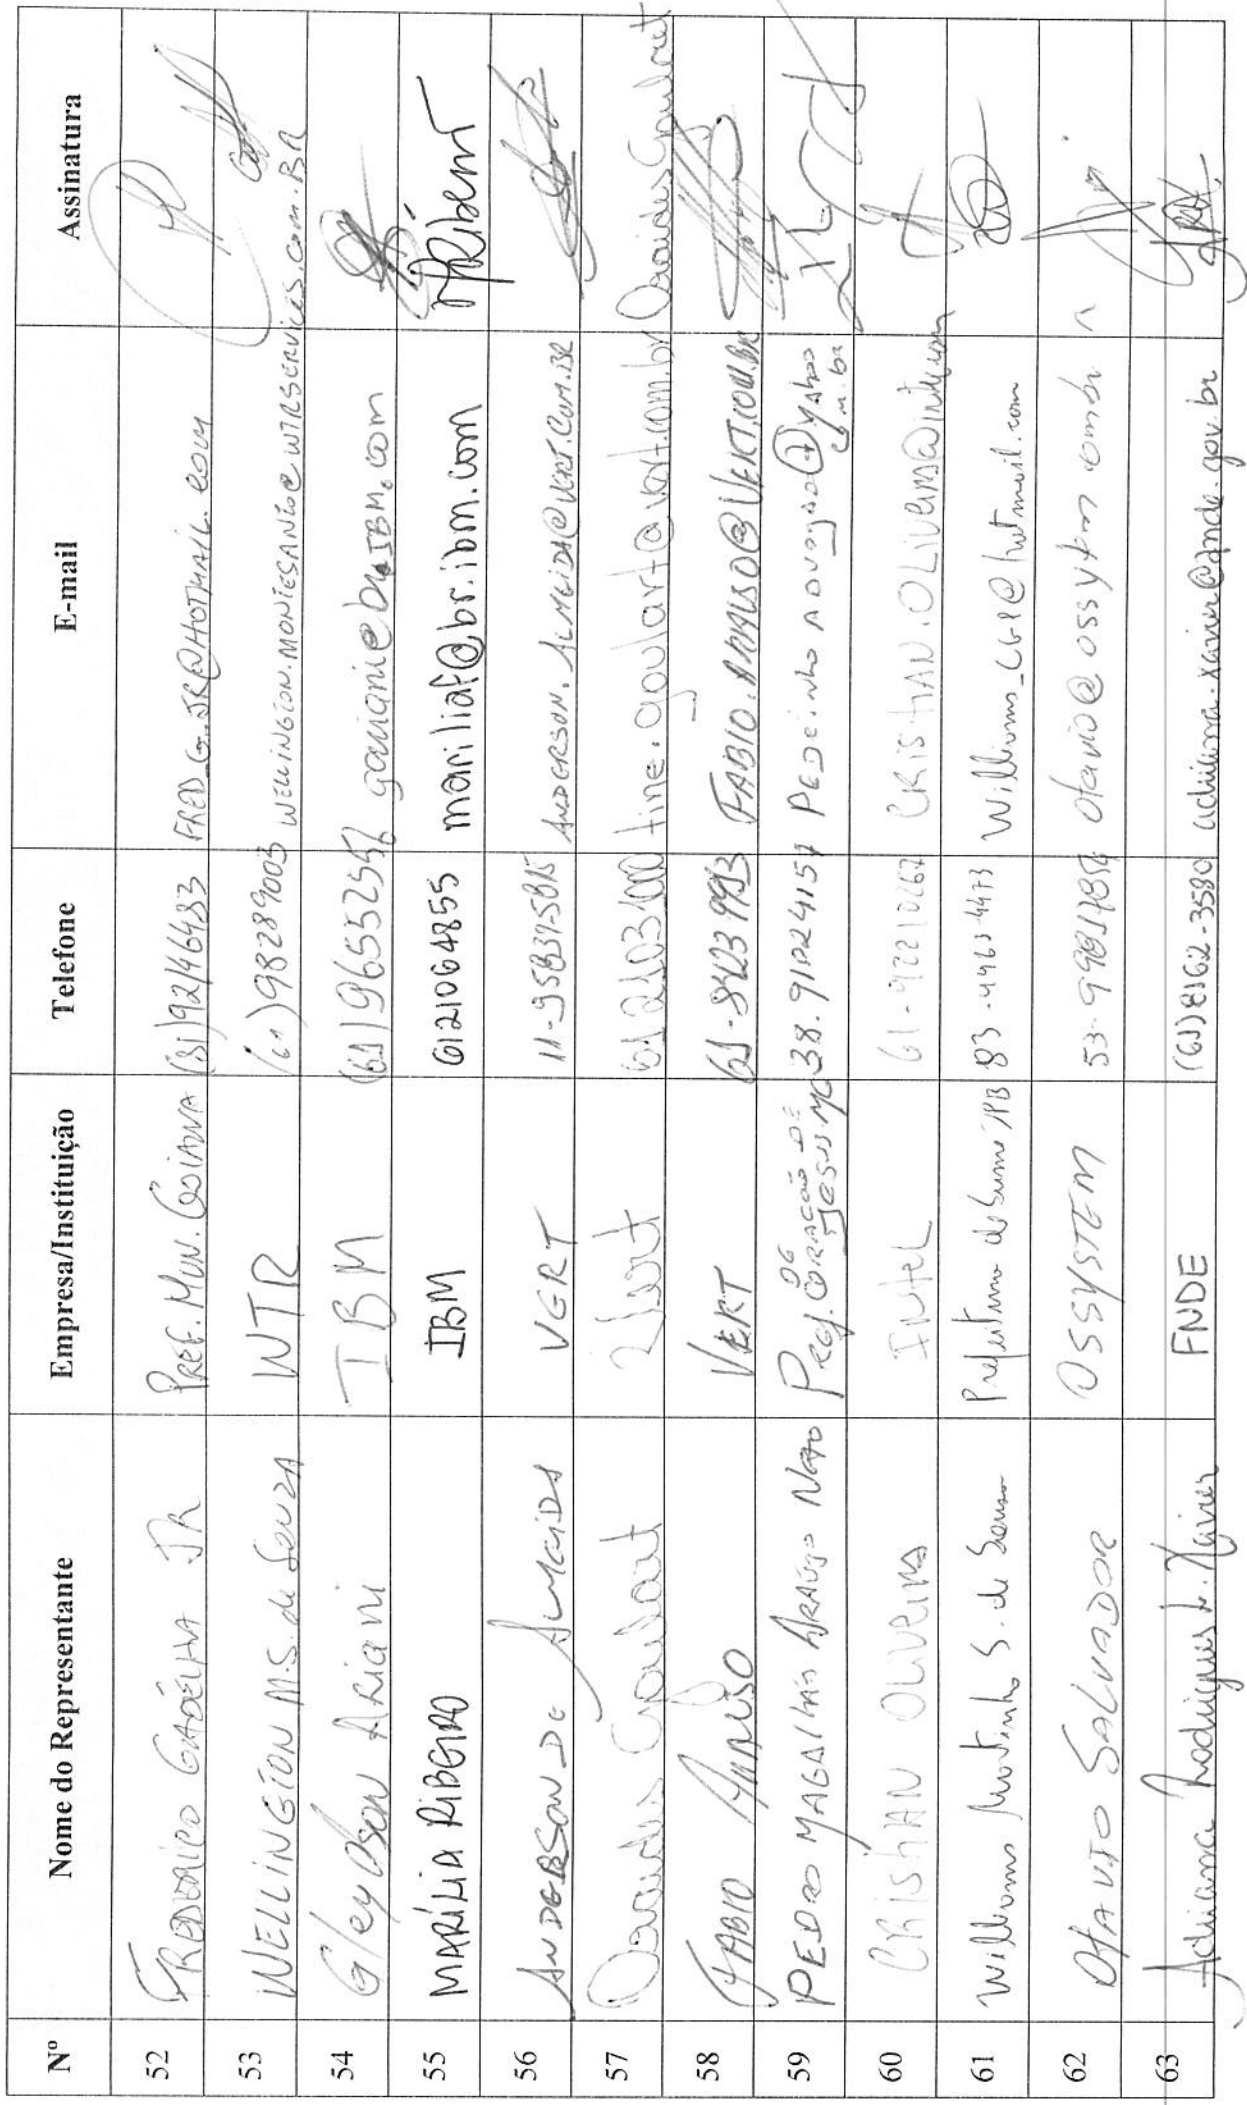 Nº Nome do Representante Empresa/Instituição Telefone E-mail Assinatura
52 FREDERICO GADÊLHA JR PREF. MUN. GOIANA (81)92146433 FRED_G_JR@HOTMAIL.COM
53 WELLINGTON M.S. de SOUZA WTR (61)98289003 WELLINGTON.MONTESANTO@WTRSERVICES.COM.BR
54 Gleydson Ariani IBM (61)96553256 gariani@br.IBM.com
55 MARÍLIA RIBEIRO IBM 6121064855 mariliaf@br.ibm.com MRibeiro
56 ANDERSON DE ALMEIDA VERT 11-95831-5815 ANDERSON.ALMEIDA@VERT.COM.BR
57 Goulart Vert 6121031400 tine.goulart@vert.com.br Goulart
58 FABIO VERT 61-8423 9993
59 PEDRO MAGALHÃES ARAÚJO NETO Pref. DE CORAÇÃO DE JESUS MG 38.91024157 PEDRINHO ADVOGADO@yahoo.com.br
60 CRISTHIAN OLIVEIRA INTEL 61-92210267 CRISTHIAN.OLIVEIRA@intel.com
61 Williams Martinho S. de Sousa Prefeitura de Sumé/PB 83-99634473 Williams_CGP@hotmail.com
62 OTAVIO SALVADOR OSSYSTEM 53-99817854 otavio@ossystem.com.br
63 Adriana Rodrigues Xavier FNDE (61)8162-3580 adriana.xavier@fnde.gov.br